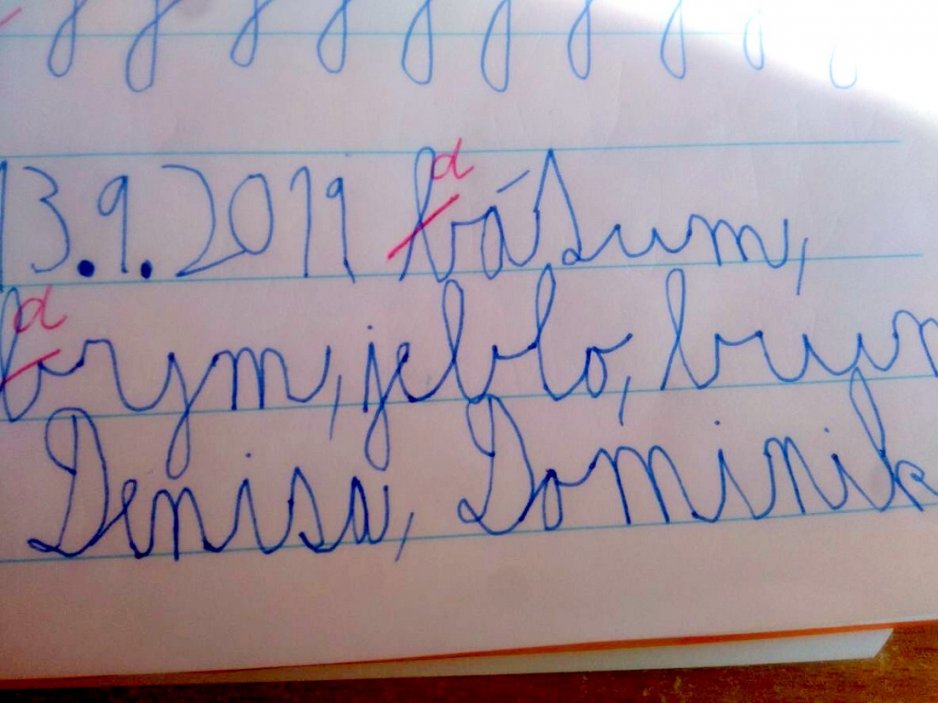 d
13.9.2019 bátum,
d
bym, jeblo,
Denisa, Dominik